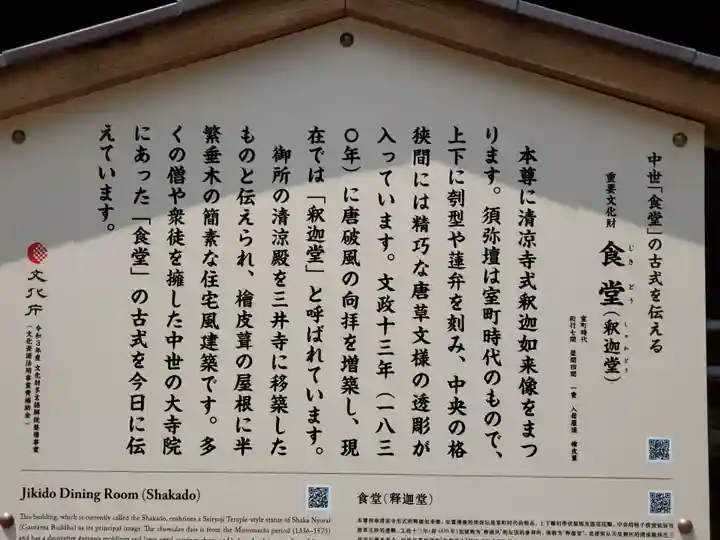 中世「食堂」の古式を伝える
重要文化財
食堂(釈迦堂)
じきどう
しゃかどう
室町時代
桁行七間 梁間四間 一重 入母屋造 檜皮葺
本尊に清凉寺式釈迦如来像をまつ
ります。須弥壇は室町時代のもので、
上下に刳型や蓮弁を刻み、中央の格
狭間には精巧な唐草文様の透彫が
入っています。文政十三年(一八三
〇年)に唐破風の向拝を増築し、現
在では「釈迦堂」と呼ばれています。
御所の清涼殿を三井寺に移築した
ものと伝えられ、檜皮葺の屋根に半
繁垂木の簡素な住宅風建築です。多
くの僧や衆徒を擁した中世の大寺院
にあった「食堂」の古式を今日に伝
えています。
文化庁
令和3年度 文化財多言語解説整備事業
(文化資源活用事業費補助金)
Jikido Dining Room (Shakado)
This building, which is currently called the Shakado, enshrines a Seiryoji Temple-style statue of Shaka Nyorai
(Gautama Buddha) as its principal image. The shumidan dais is from the Muromachi period (1336–1573)
and has a decorative
食堂(释迦堂)